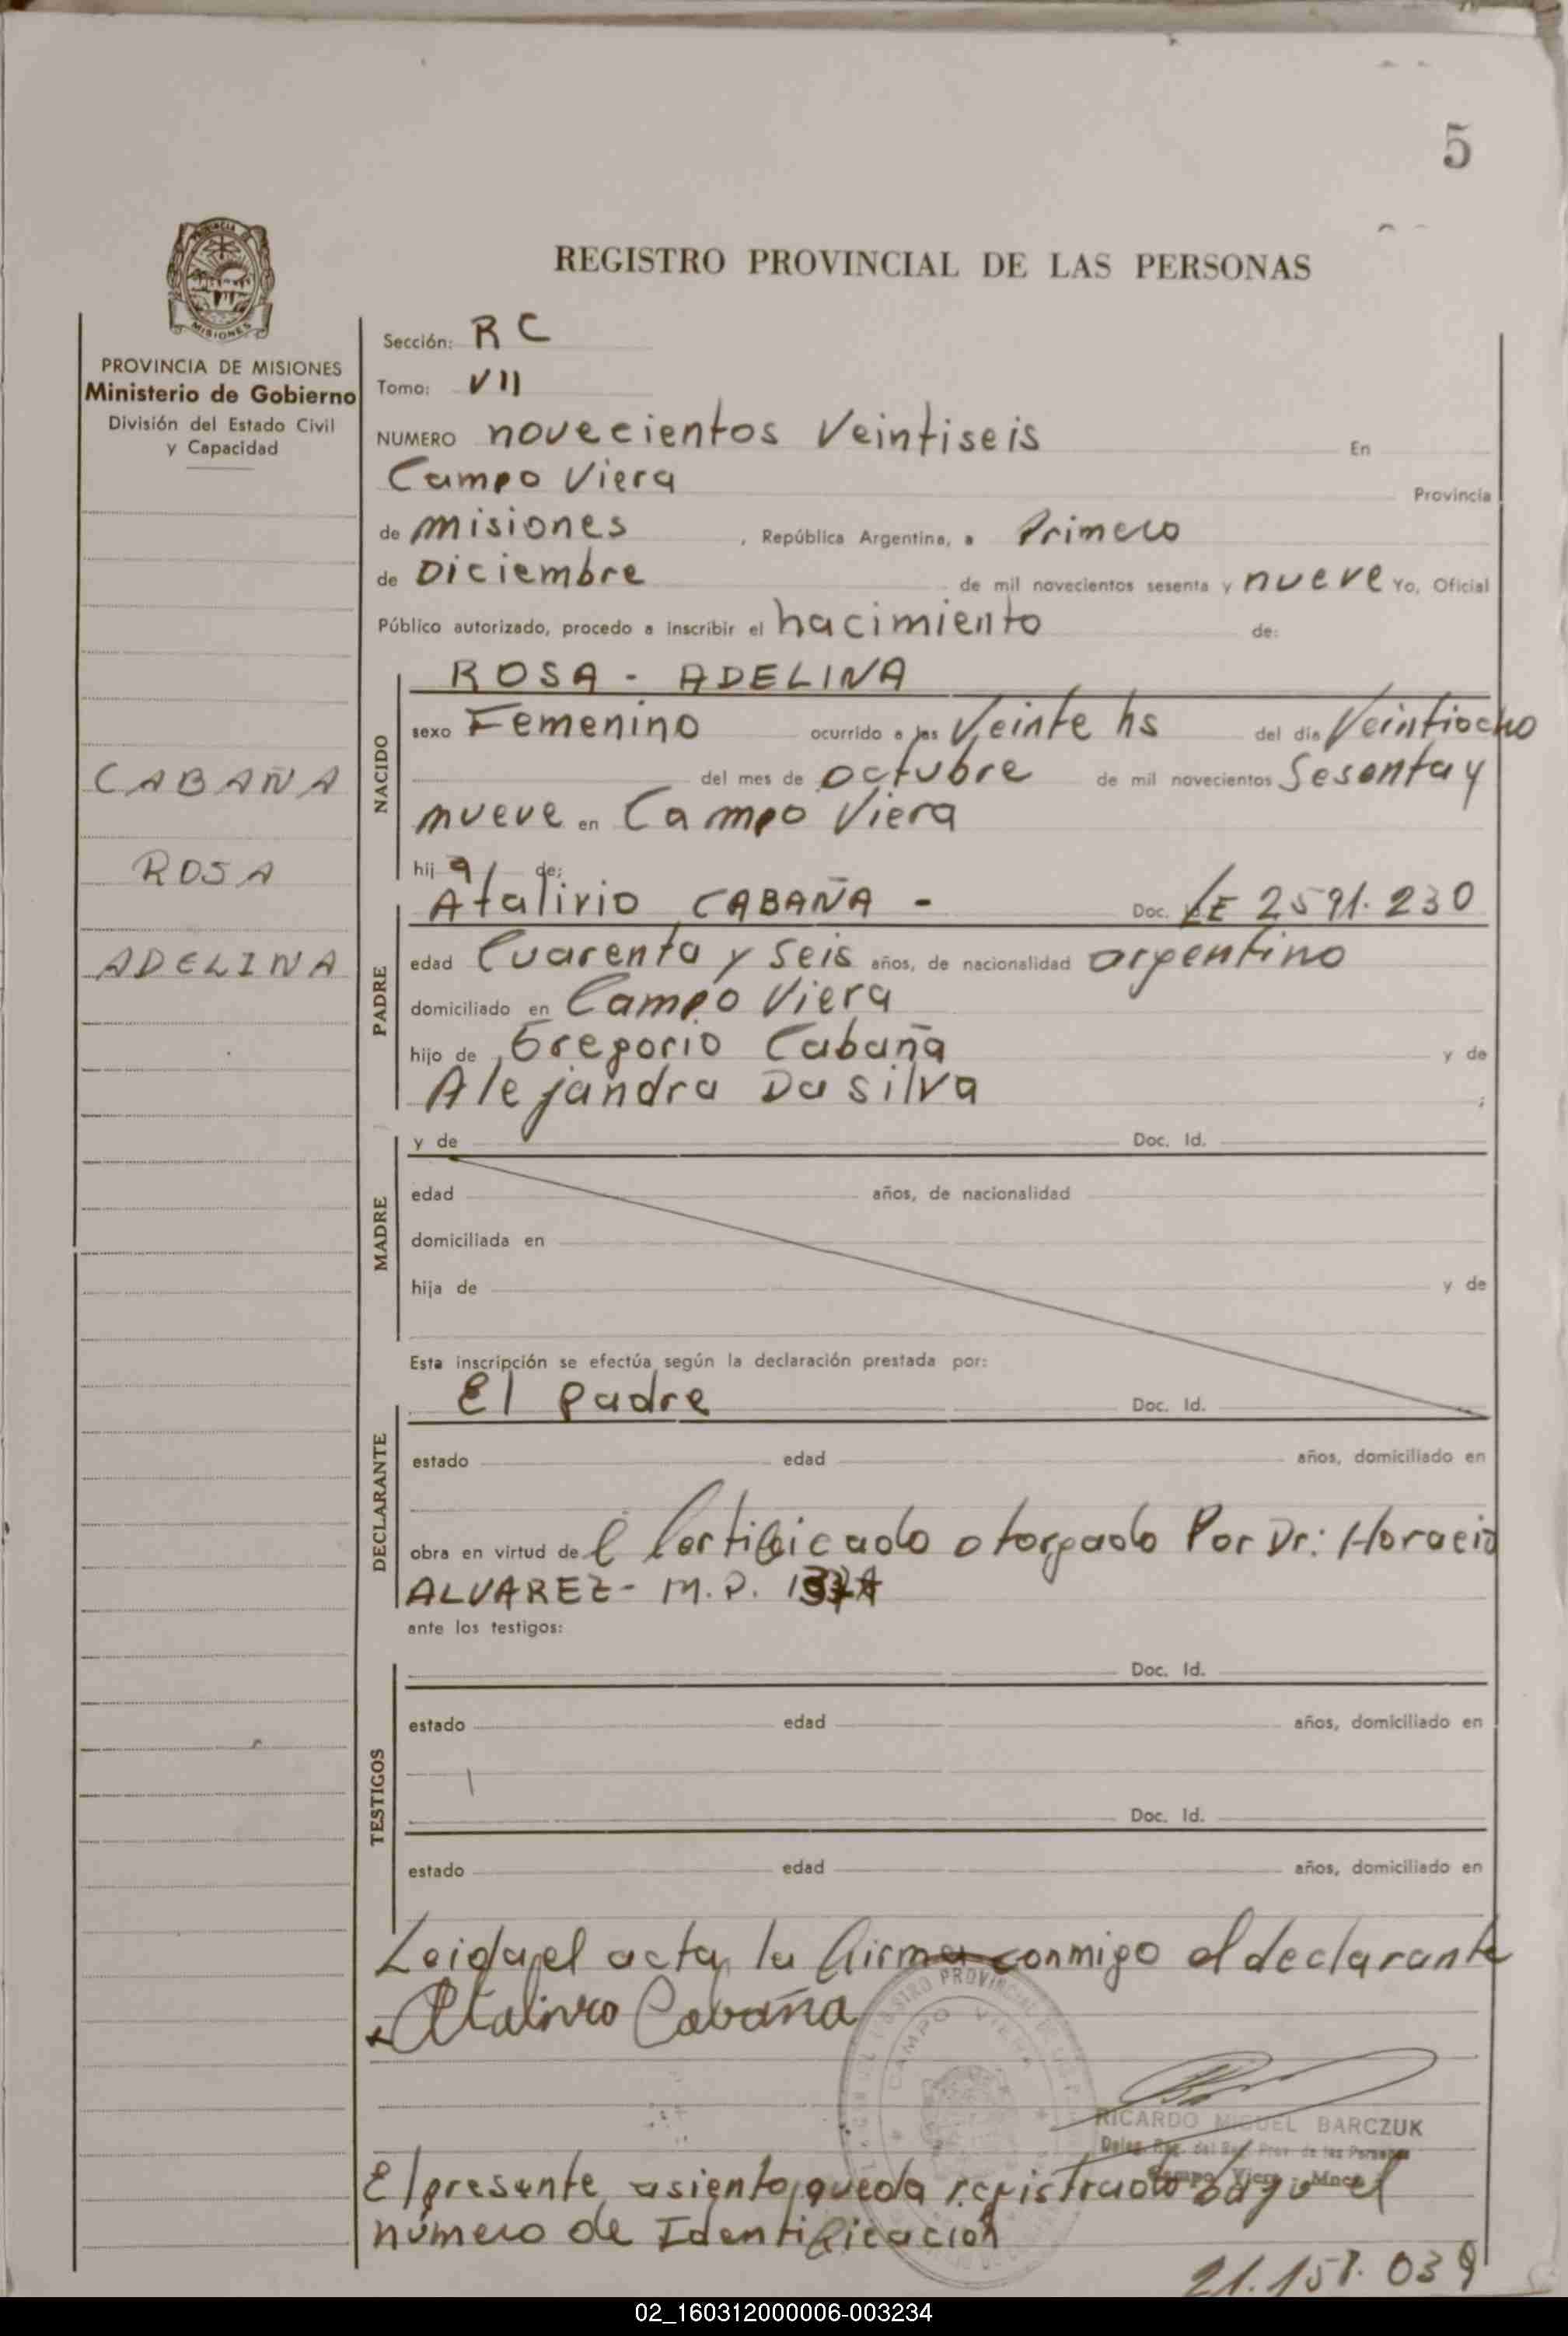 5
PROVINCIA DE
MISIONES
REGISTRO PROVINCIAL DE LAS PERSONAS
PROVINCIA DE MISIONES
Ministerio de Gobierno
División del Estado Civil
y Capacidad
CABAÑA
ROSA
ADELINA
Sección: R C
Tomo: VII
NUMERO novecientos Veintiseis En
Campo Viera Provincia
de misiones , República Argentina, a Primero
de Diciembre de mil novecientos sesenta y nueve Yo, Oficial
Público autorizado, procedo a inscribir el nacimiento de:
NACIDO
ROSA - ADELINA
sexo Femenino ocurrido a las Veinte hs del día Veintiocho
del mes de octubre de mil novecientos Sesenta y
nueve en Campo Viera
hij a de:
PADRE
Atalivio CABAÑA - Doc. LE 2591.230
edad Cuarenta y Seis años, de nacionalidad argentino
domiciliado en Campo Viera
hijo de Gregorio Cabaña y de
Alejandra Da silva ;
MADRE
y de Doc. Id.
edad años, de nacionalidad
domiciliada en
hija de y de
Esta inscripción se efectúa según la declaración prestada por:
DECLARANTE
El padre Doc. Id.
estado edad años, domiciliado en
obra en virtud de l Certificado otorgado Por Dr: Horacio
ALVAREZ - M.P.
ante los testigos:
TESTIGOS
Doc. Id.
estado edad años, domiciliado en
Doc. Id.
estado edad años, domiciliado en
Leida el acta, la firma conmigo el declarante
Atalivio Cabaña
CAMPO VIERA
RICARDO MIGUEL BARCZUK
Deleg. Reg. del Reg. Prov. de las Personas
Campo Viera - Mnes
El presente asiento queda registrado bajo el
número de Identificación
21.157.039
02_160312000006-003234